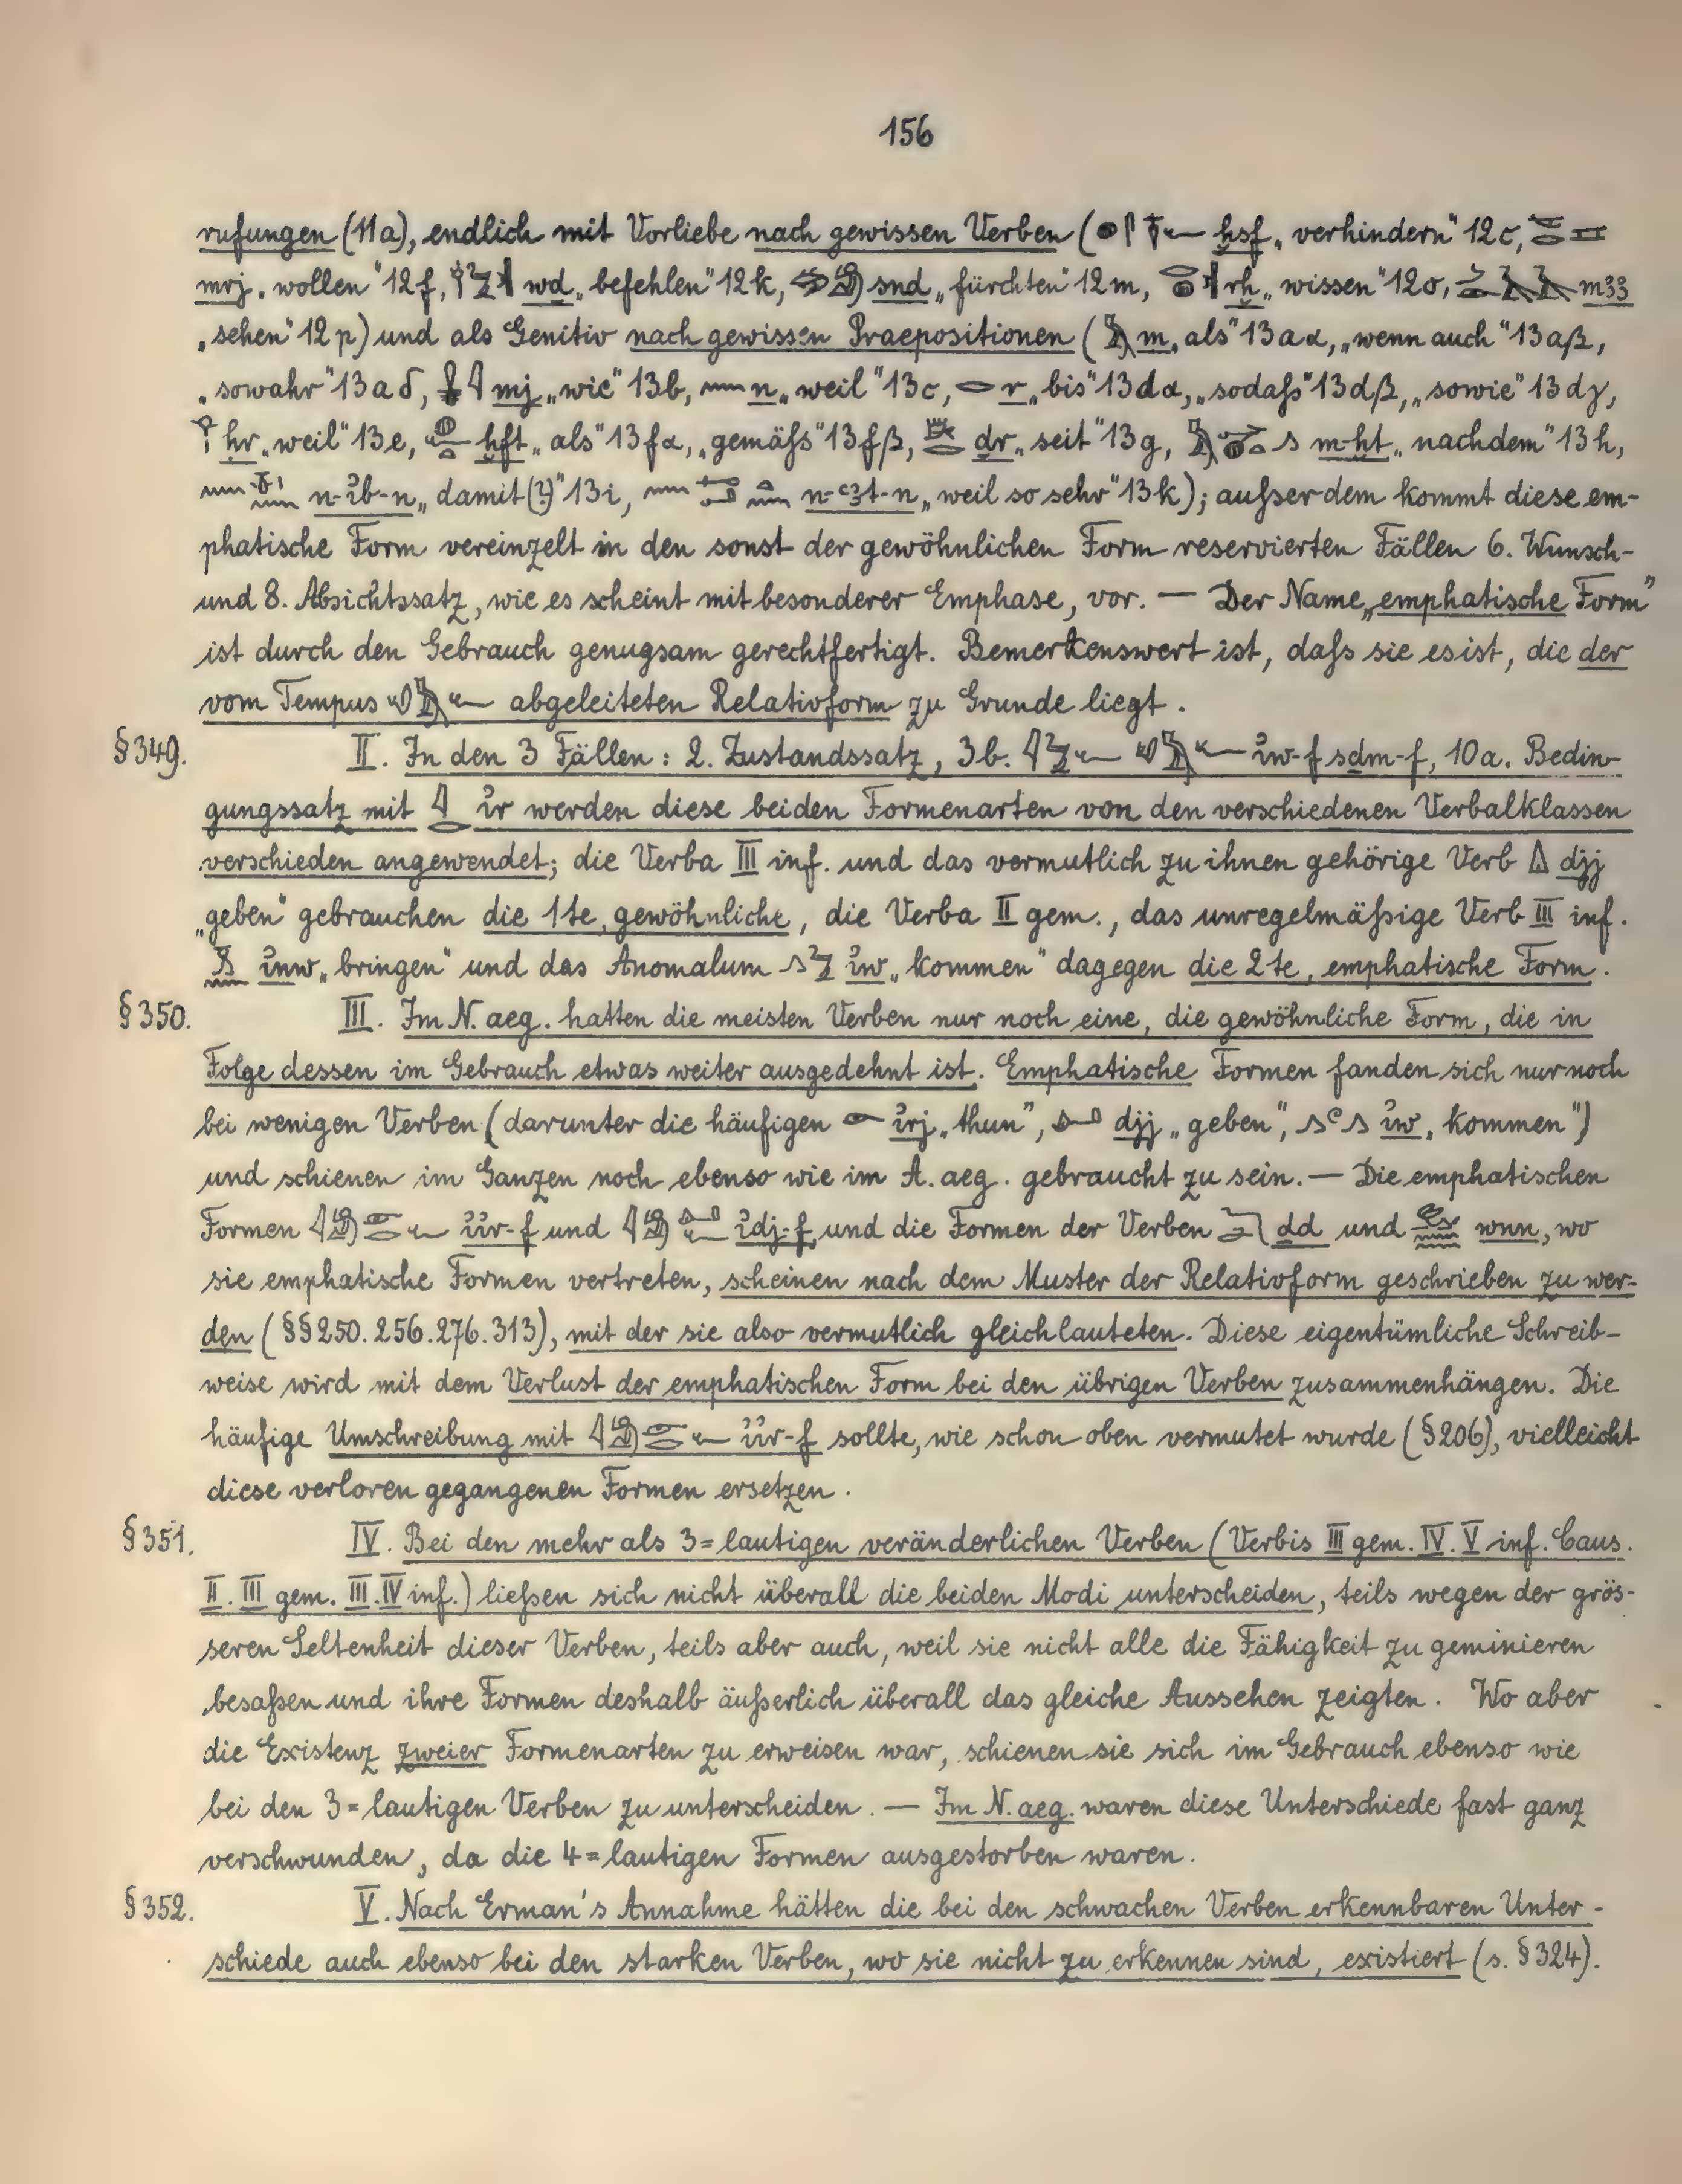 156
rufungen (11a), endlich mit Vorliebe nach gewissen Verben ( ḫsf „verhindern" 12c,
mrj „wollen" 12f, wḏ „befehlen" 12k, snḏ „fürchten" 12m, rḫ „wissen" 12o, m33
„sehen" 12p) und als Genitiv nach gewissen Praepositionen ( m „als" 13aα, „wenn auch" 13aβ,
„sowahr" 13aδ, mj „wie" 13b, n „weil" 13c, r „bis" 13dα, „sodaſs" 13dβ, „sowie" 13dγ,
ḥr „weil" 13e, ḫft „als" 13fα, „gemäſs" 13fβ, ḏr „seit" 13g, m-ḫt „nachdem" 13h,
n-ỉb-n „damit(?)" 13i, n-ꜥ3t-n „weil so sehr" 13k); auſserdem kommt diese em-
phatische Form vereinzelt in den sonst der gewöhnlichen Form reservierten Fällen 6. Wunsch-
und 8. Absichtssatz, wie es scheint mit besonderer Emphase, vor. — Der Name „emphatische Form"
ist durch den Gebrauch genugsam gerechtfertigt. Bemerkenswert ist, daſs sie es ist, die der
vom Tempus abgeleiteten Relativform zu Grunde liegt.
§349. II. In den 3 Fällen: 2. Zustandssatz, 3b. ỉw-f sḏm-f, 10a. Bedin-
gungssatz mit ỉr werden diese beiden Formenarten von den verschiedenen Verbalklassen
verschieden angewendet; die Verba III inf. und das vermutlich zu ihnen gehörige Verb djj
„geben" gebrauchen die 1te, gewöhnliche, die Verba II gem., das unregelmäſsige Verb III inf.
ỉnw „bringen" und das Anomalum ỉw „kommen" dagegen die 2te, emphatische Form.
§350. III. Im N. aeg. hatten die meisten Verben nur noch eine, die gewöhnliche Form, die in
Folge dessen im Gebrauch etwas weiter ausgedehnt ist. Emphatische Formen fanden sich nur noch
bei wenigen Verben (darunter die häufigen ỉrj „thun", djj „geben", ỉw „kommen")
und schienen im Ganzen noch ebenso wie im A. aeg. gebraucht zu sein. — Die emphatischen
Formen ỉỉr-f und ỉdj-f, und die Formen der Verben ḏd und wnn, wo
sie emphatische Formen vertreten, scheinen nach dem Muster der Relativform geschrieben zu wer-
den (§§250. 256. 276. 313), mit der sie also vermutlich gleichlauteten. Diese eigentümliche Schreib-
weise wird mit dem Verlust der emphatischen Form bei den übrigen Verben zusammenhängen. Die
häufige Umschreibung mit ỉỉr-f sollte, wie schon oben vermutet wurde (§206), vielleicht
diese verloren gegangenen Formen ersetzen.
§351. IV. Bei den mehr als 3=lautigen veränderlichen Verben (Verbis III gem. IV. V inf. Caus.
II. III gem. III. IV inf.) lieſsen sich nicht überall die beiden Modi unterscheiden, teils wegen der grös-
seren Seltenheit dieser Verben, teils aber auch, weil sie nicht alle die Fähigkeit zu geminieren
besaſsen und ihre Formen deshalb äuſserlich überall das gleiche Aussehen zeigten. Wo aber
die Existenz zweier Formenarten zu erweisen war, schienen sie sich im Gebrauch ebenso wie
bei den 3=lautigen Verben zu unterscheiden. — Im N. aeg. waren diese Unterschiede fast ganz
verschwunden, da die 4=lautigen Formen ausgestorben waren.
§352. V. Nach Erman's Annahme hätten die bei den schwachen Verben erkennbaren Unter-
schiede auch ebenso bei den starken Verben, wo sie nicht zu erkennen sind, existiert (s. §324).